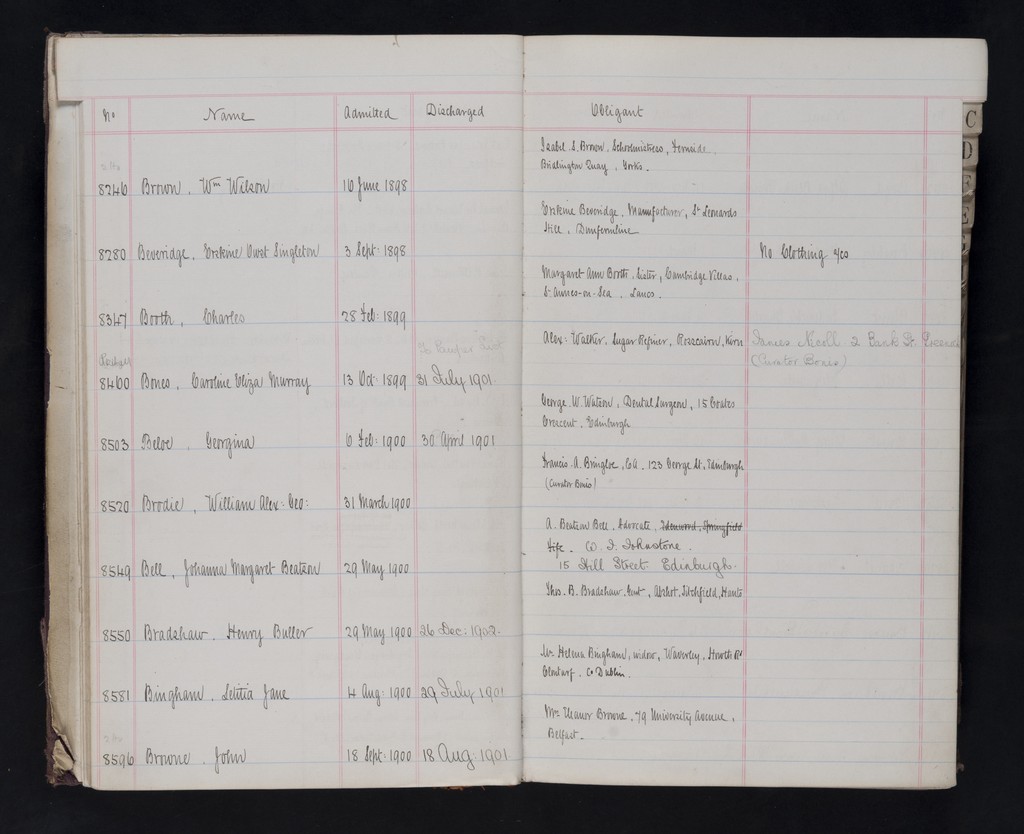 No Name Admitted Discharged Obligant
Isabel S. Brown, Schoolmistress, Fernside,
Bridlington Quay, Yorks.
8246 Brown, Wm Wilson 16 June 1898
Erskine Beveridge, Manufacturer, St Leonards
Hill, Dunfermline
8280 Beveridge, Erskine Owst Singleton 3 Sept: 1898 No Clothing a/cs
Margaret Ann Booth, Sister, Cambridge Villas,
St Annes-on-Sea, Lancs.
8347 Booth, Charles 28 Feb: 1899
Alex: Walker, Sugar Refiner, Rosecairn, Kirn James 2 Bank St.
(Curator Bonis)
8400 Bones, Caroline Eliza Murray 13 Oct: 1899 31 July 1901.
George W. Watson, Dental Surgeon, 15 Coates
Crescent, Edinburgh
8503 Beloe, Georgina 6 Feb: 1900 30 April 1901
Francis A. Bringloe, C.A. 123 George St, Edinburgh
(Curator Bonis)
8520 Brodie, William Alex: Geo: 31 March 1900
A. Beatson Bell, Advocate, Edenwood, Springfield
Fife. W. J. Johnstone.
15 Hill Street Edinburgh.
8549 Bell, Johanna Margaret Beatson 29 May 1900
Thos. B. Bradshaw, Gent, Titchfield, Hants
8550 Bradshaw, Henry Buller 29 May 1900 26 Dec: 1902.
Mrs Helena Bingham, widow, Waverley, Howth Rd
Clontarf, Co Dublin.
8581 Bingham, Letitia Jane 4 Aug: 1900 29 July 1901
Mrs Eleanor Browne, 79 University Avenue,
Belfast.
8596 Browne, John 18 Sept: 1900 18 Aug: 1901
C
D
F